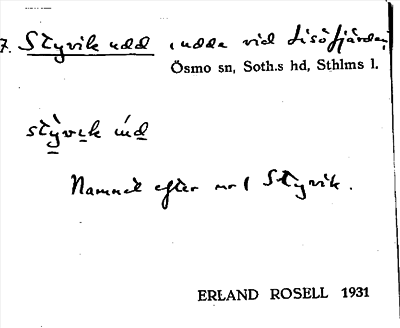 7. Styvik udd, udde vid Lisöfjärden,
Ösmo sn, Soth.s hd, Sthlms l.
stỳvık úd
Namnet efter nr 1 Styvik.
ERLAND ROSELL 1931